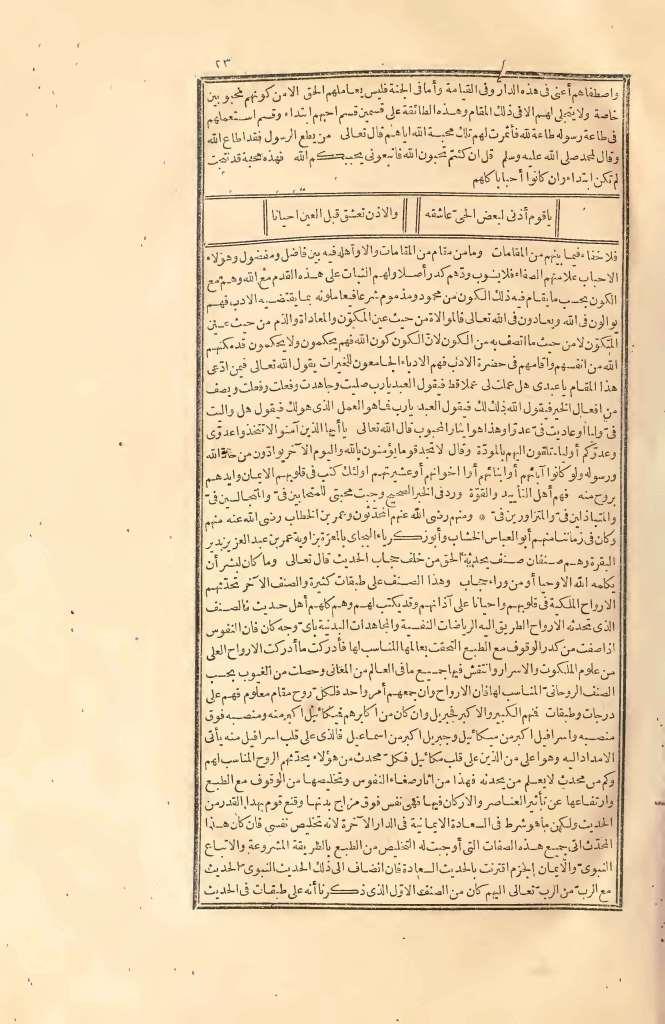 ٢٣
واصطفاهم أعنى فى هذه الدار وفى القيامة وأما فى الجنة فليس يعاملهم الحق الا من كونهم محبوبين
خاصة ولا يتجلى لهم الا فى ذلك المقام وهذه الطائفة على قسمين قسم احبهم ابتداء وقسم استعملهم
فى طاعة رسوله طاعة لله فأثمرت لهم تلك محبة الله اياهم قال تعالى من يطع الرسول فقد اطاع الله
وقال لمحمد صلى الله عليه وسلم قل ان كنتم تحبون الله فاتبعونى يحببكم الله فهذه محبة قد نتجت
لم تكن ابتداء وان كانوا أحبابا كلهم
ياقوم أذنى لبعض الحى عاشقه والاذن تعشق قبل العين احيانا
فلا خفاء فيما بينهم من المقامات وما من مقام من المقامات والا وأهله فيه بين فاضل ومفضول وهؤلاء
الاحباب علامتهم الصفاء فلا يشوب ودهم كدر أصلا ولهم الثبات على هذه القدم مع الله وهم مع
الكون بحسب ما يقام فيه ذلك الكون من محمود ومذموم شرعا فيعاملونه بما يقتضيه الادب فهم
يوالون فى الله ويعادون فى الله تعالى فالموالاة من حيث عين المكون والمعاداة والذم من حيث عين
المتكون لا من حيث ما اتصف به من الكون لان الكون كون الله فهم يحكمون ولا يحكمون قد مكنهم
الله من انفسهم وأقامهم فى حضرة الادب فهم الادباء الجامعون للخيرات يقول الله تعالى فيمن ادعى
هذا المقام يا عبدى هل عملت لى عملا قط فيقول العبد يارب صليت وجاهدت وفعلت وفعلت ويصف
من افعال الخير فيقول الله ذلك لك فيقول العبد يارب فما هو العمل الذى هو لك فيقول هل واليت
فىّ وليا أو عاديت فىّ عدوا وهذا هو ايثار المحبوب قال الله تعالى ياأيها الذين آمنوا لا تتخذوا عدوى
وعدوكم أوليا تلقون اليهم بالمودة وقال لا تجد قوما يؤمنون بالله واليوم الآخر يوادون من حاد الله
ورسوله ولو كانوا آبائهم أو ابنائهم أو اخوانهم أو عشيرتهم اولئك كتب فى قلوبهم الايمان وايدهم
بروح منه فهم أهل التأييد والقوة ورد فى الخبر الصحيح وجبت محبتى للمتحابين فىّ والمتجالسين فىّ
والمتباذلين فىّ والمتزاورين فىّ * ومنهم رضى الله عنهم المحدّثون وعمر بن الخطاب رضى الله عنه منهم
وكان فى زماننا منهم أبو العباس الخشاب وأبو زكرياء البجاى بالمعرة بزاوية عمر بن عبد العزيز بدير
البقرة وهم صنفان صنف يحدثه الحق من خلف حجاب الحديث قال تعالى وما كان لبشر أن
يكلمه الله الا وحيا أو من وراء حجاب وهذا الصنف على طبقات كثيرة والصنف الآخر تحدثهم
الارواح الملكية فى قلوبهم واحيانا على آذانهم وقد يكتب لهم وهم كلهم أهل حديث فالصنف
الذى تحدثه الارواح الطريق اليه الرياضات النفسية والمجاهدات البدنية بأى وجه كان فان النفوس
اذا صفت من كدر الوقوف مع الطبع التحقت بعالمها المناسب لها فأدركت ما أدركت الارواح العلى
من علوم الملكوت والاسرار وانتقش فيها جميع ما فى العالم من المعانى وحصلت من الغيوب بحسب
الصنف الروحانى المناسب لها فان الارواح وان جمعهم أمر واحد فلكل روح مقام معلوم فهم على
درجات وطبقات فمنهم الكبير والاكبر فجبريل وان كان من اكابرهم فميكائيل اكبر منه ومنصبه فوق
منصبه واسرافيل اكبر من ميكائيل وجبريل اكبر من اسماعيل فالذى على قلب اسرافيل منه يأتى
الامداد اليه وهو اعلى من الذين على قلب ميكائيل فكل محدث من هؤلاء يحدثهم الروح المناسب لهم
وكم من محدث لا يعلم من يحدثه فهذا من آثار صفاء النفوس وتخليصها من الوقوف مع الطبع
وارتفاعها عن تأثير العناصر والاركان فيها فهى نفس فوق مزاج بدنها وقنع قوم بهذا القدر من
الحديث ولكن ما هو شرط فى السعادة الايمانية فى الدار الآخرة لانه تخليص نفسى فان كان هذا
المحدث اتى جميع هذه الصفات التى أوجبت له التخليص من الطبع بالطريقة المشروعة والاتباع
النبوى والايمان الجزم اقترنت بالحديث السعادة فان انضاف الى ذلك الحديث النبوى الحديث
مع الرب من الرب تعالى اليهم كان من الصنف الاول الذى ذكرنا أنه على طبقات فى الحديث